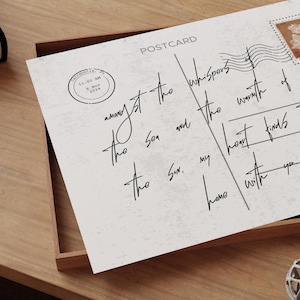 POSTCARD
11:00 AM
amongst the whispers of
the sea and the warmth of
the sun, my heart finds
home with you